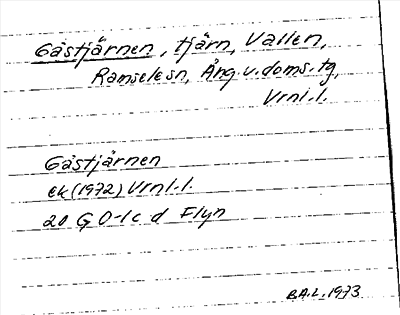 Gåstjärnen, tjärn, Vallen,
Ramselesn, Ång. v. doms. tg,
Vrnl. l.
Gåstjärnen
ek (1972) Vrnl. l.
20 G 0-1 c d Flyn
B.A.L. 1973